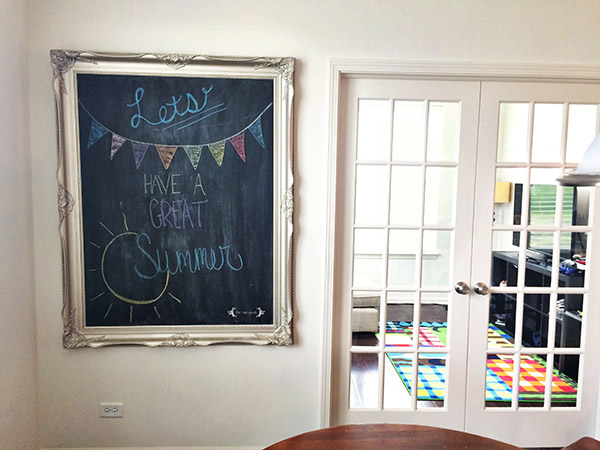 Lets
HAVE A
GREAT
Summer